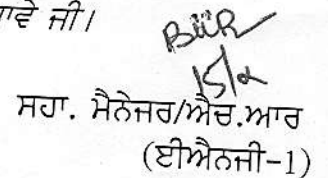 ਜਾਵੇ ਜੀ।
15/2
ਸਹਾ. ਮੈਨੇਜਰ/ਐਚ.ਆਰ
(ਈਐਨਜੀ-1)